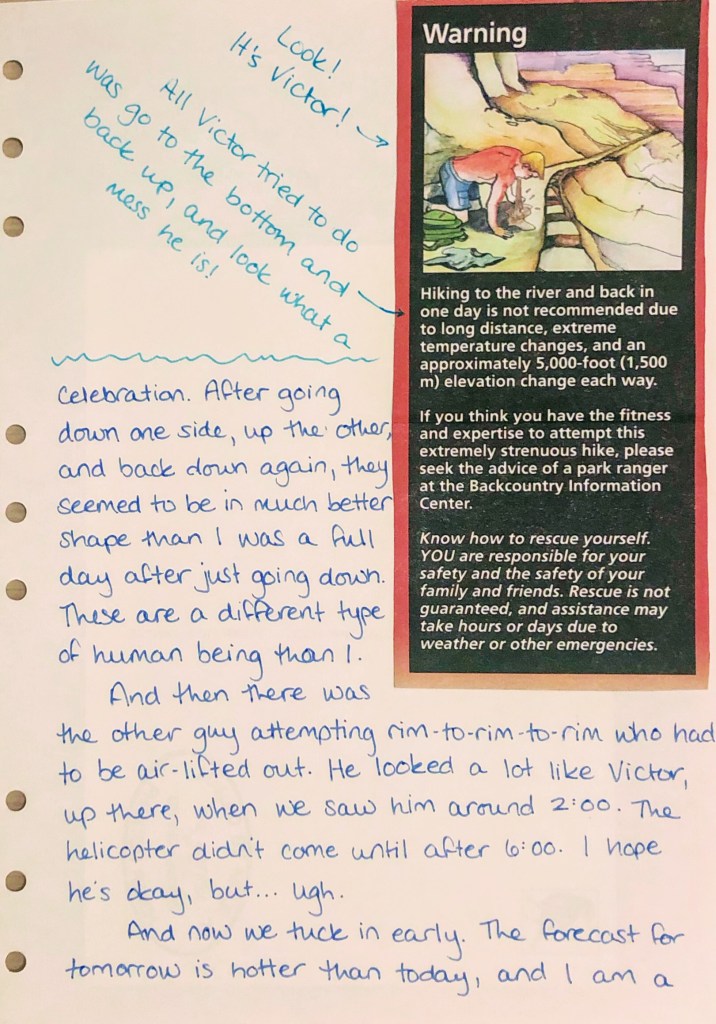 Look!
It's Victor!
All Victor tried to do
was go to the bottom and
back up, and look what a
mess he is!
Warning
Hiking to the river and back in
one day is not recommended due
to long distance, extreme
temperature changes, and an
approximately 5,000-foot (1,500
m) elevation change each way.
If you think you have the fitness
and expertise to attempt this
extremely strenuous hike, please
seek the advice of a park ranger
at the Backcountry Information
Center.
Know how to rescue yourself.
YOU are responsible for your
safety and the safety of your
family and friends. Rescue is not
guaranteed, and assistance may
take hours or days due to
weather or other emergencies.
Celebration. After going
down one side, up the other,
and back down again, they
seemed to be in much better
shape than I was a full
day after just going down.
These are a different type
of human being than I.
And then there was
the other guy attempting rim-to-rim-to-rim who had
to be air-lifted out. He looked a lot like Victor,
up there, when we saw him around 2:00. The
helicopter didn't come until after 6:00. I hope
he's okay, but... ugh.
And now we tuck in early. The forecast for
tomorrow is hotter than today, and I am a